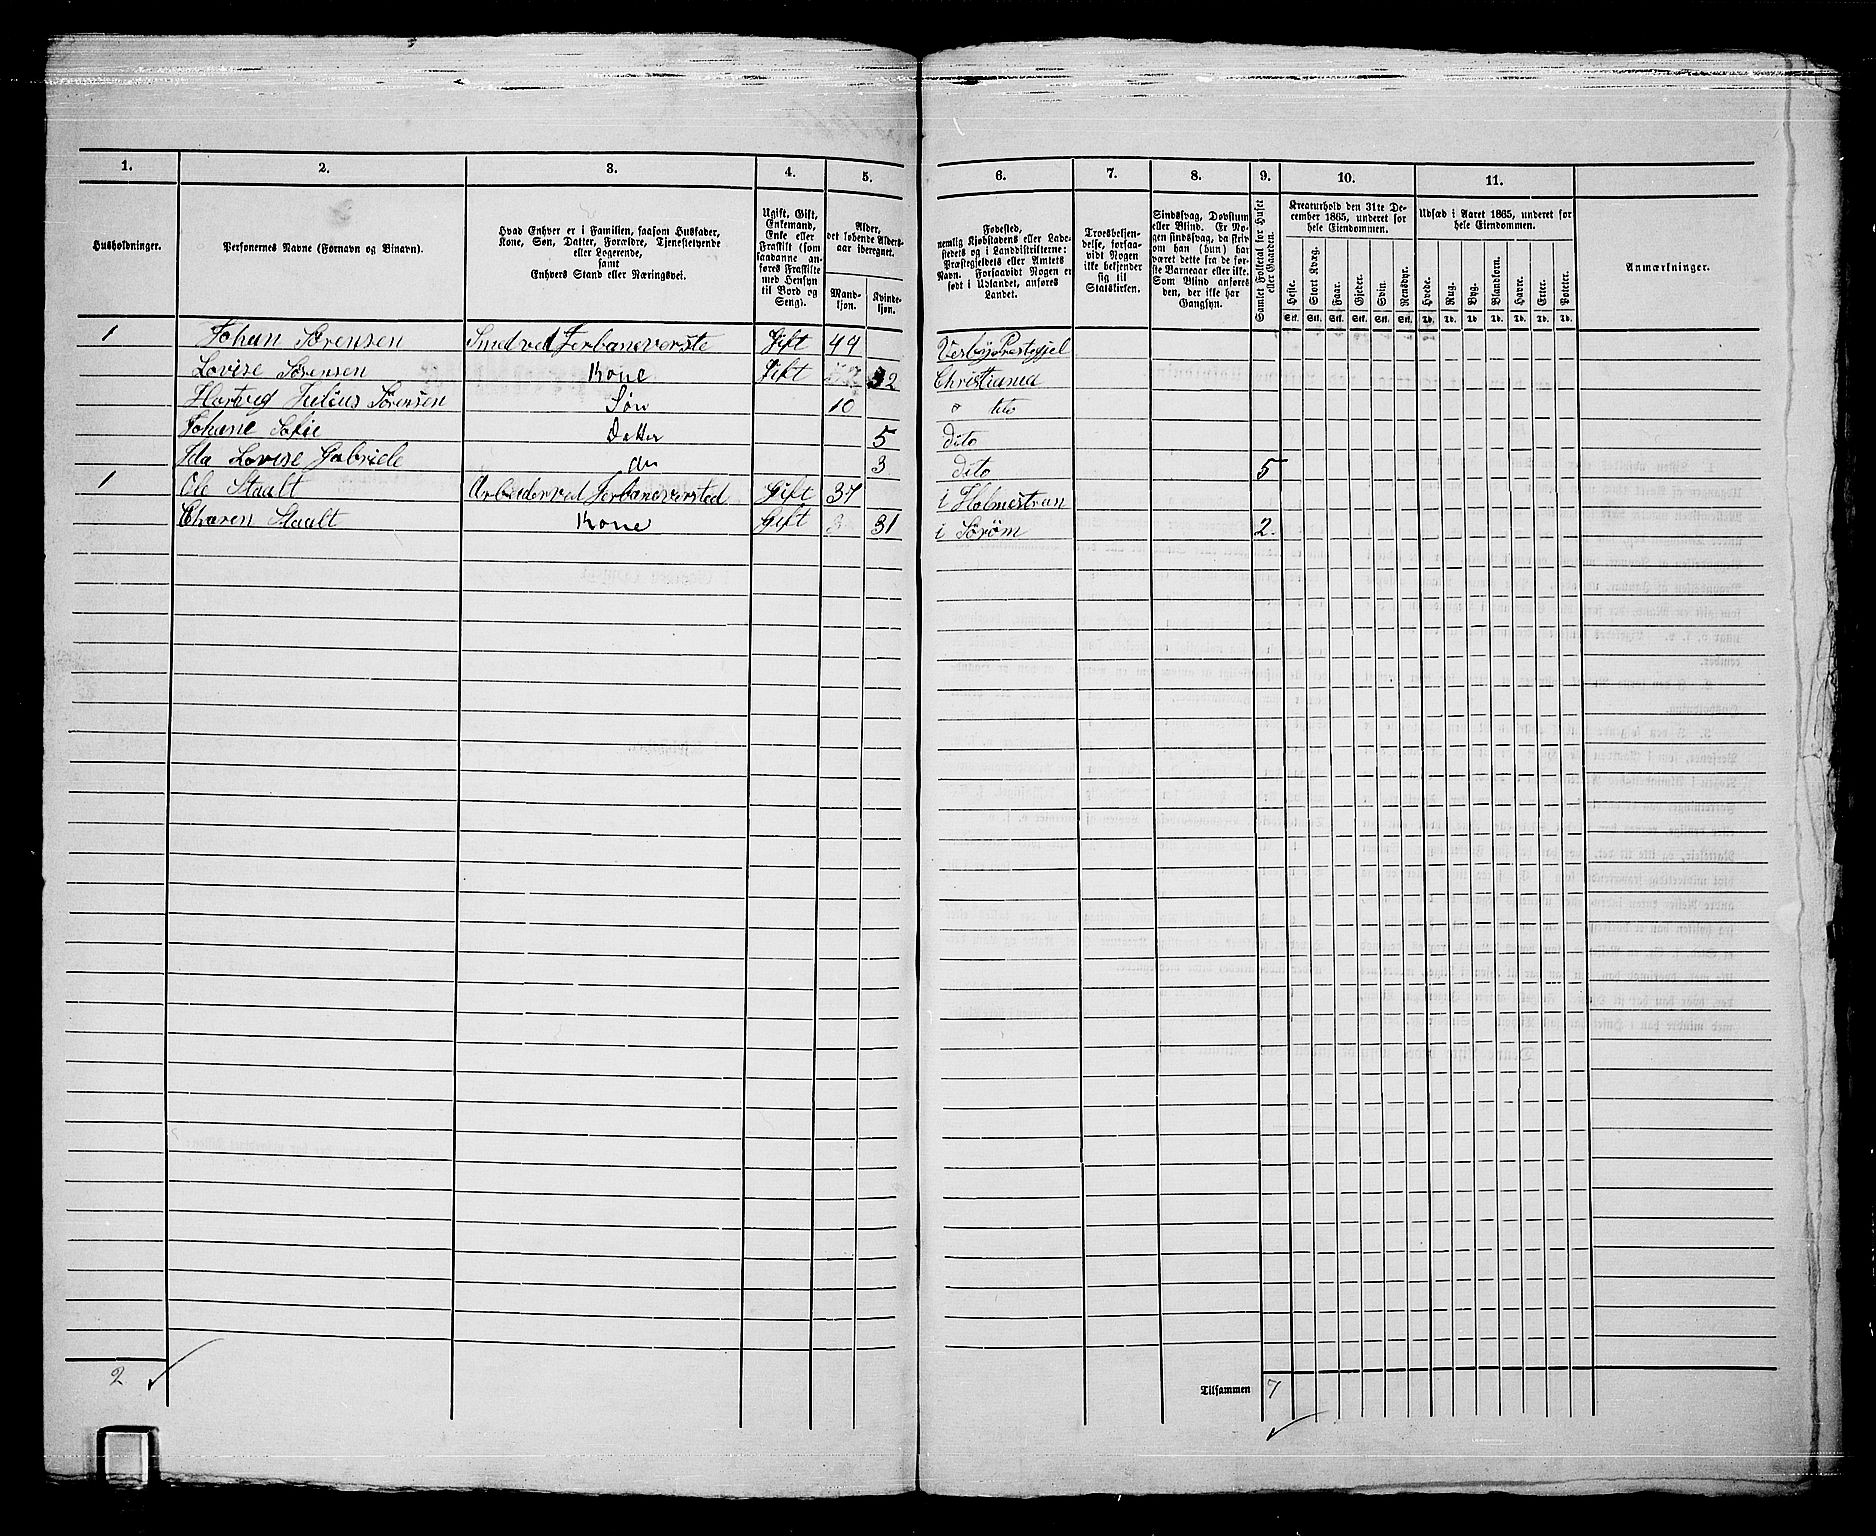 1. 2. 3. 4. 5. 6. 7. 8. 9. 10. 11.
Husholdninger.
Personernes Navne (Fornavn og Binavn).
Hvad Enhver er i Familien, saasom Husfader,
Kone, Søn, Datter, Forældre, Tjenestetyende
eller Logerende,
samt
Enhvers Stand eller Næringsvei.
Ugift, Gift,
Enkemand,
Enke eller
Fraskilt (som
saadanne an-
føres Fraskilte
med Hensyn
til Bord og
Seng).
Alder,
det løbende Alders-
aar iberegnet.
Mand-
kjøn.
Kvinde-
kjøn.
Fødested,
nemlig Kjøbstadens eller Lade-
stedets og i Landdistrikterne:
Præstegjeldets eller Amtets
Navn. Forsaavidt Nogen er
født i Udlandet, anføres
Landet.
Troesbekjen-
delse, forsaa-
vidt Nogen
ikke bekjender
sig til
Statskirken.
Sindssvag, Døvstum
eller Blind. Er No-
gen sindssvag, da skriv
om han (hun) har
været dette fra de før-
ste Barneaar eller ikke.
Som Blind anføres
den, der ikke har
Gangsyn.
Samlet Folketal for Huset
eller Gaarden.
Kreaturhold den 31te De-
cember 1865, underet for
hele Eiendommen.
Heste. Stort Kvæg. Faar. Gjeder. Svin. Rensdyr.
Stk. Stk. Stk. Stk. Stk. Stk.
Udsæd i Aaret 1865, underet for
hele Eiendommen.
Hvede. Rug. Byg. Blandkorn. Havre. Erter. Poteter.
Td. Td. Td. Td. Td. Td. Td.
Anmærkninger.
1 Johan Sørensen Smed ved Jerbaneverste Gift 44 Vesby Prestegjel
Lovise Sørensen Kone Gift 32 Christiania
Hartvig Julius Sørensen Søn 10 dito
Johane Sofie Datter 5 dito
Ida Lovise Gabriele do 3 dito 5
1 Ole Staalt Arbeider ved Jerbaneversted Gift 37 i Holmestran
Charen Staalt Kone Gift 31 i Sørøm 2.
2
Tilsammen 7